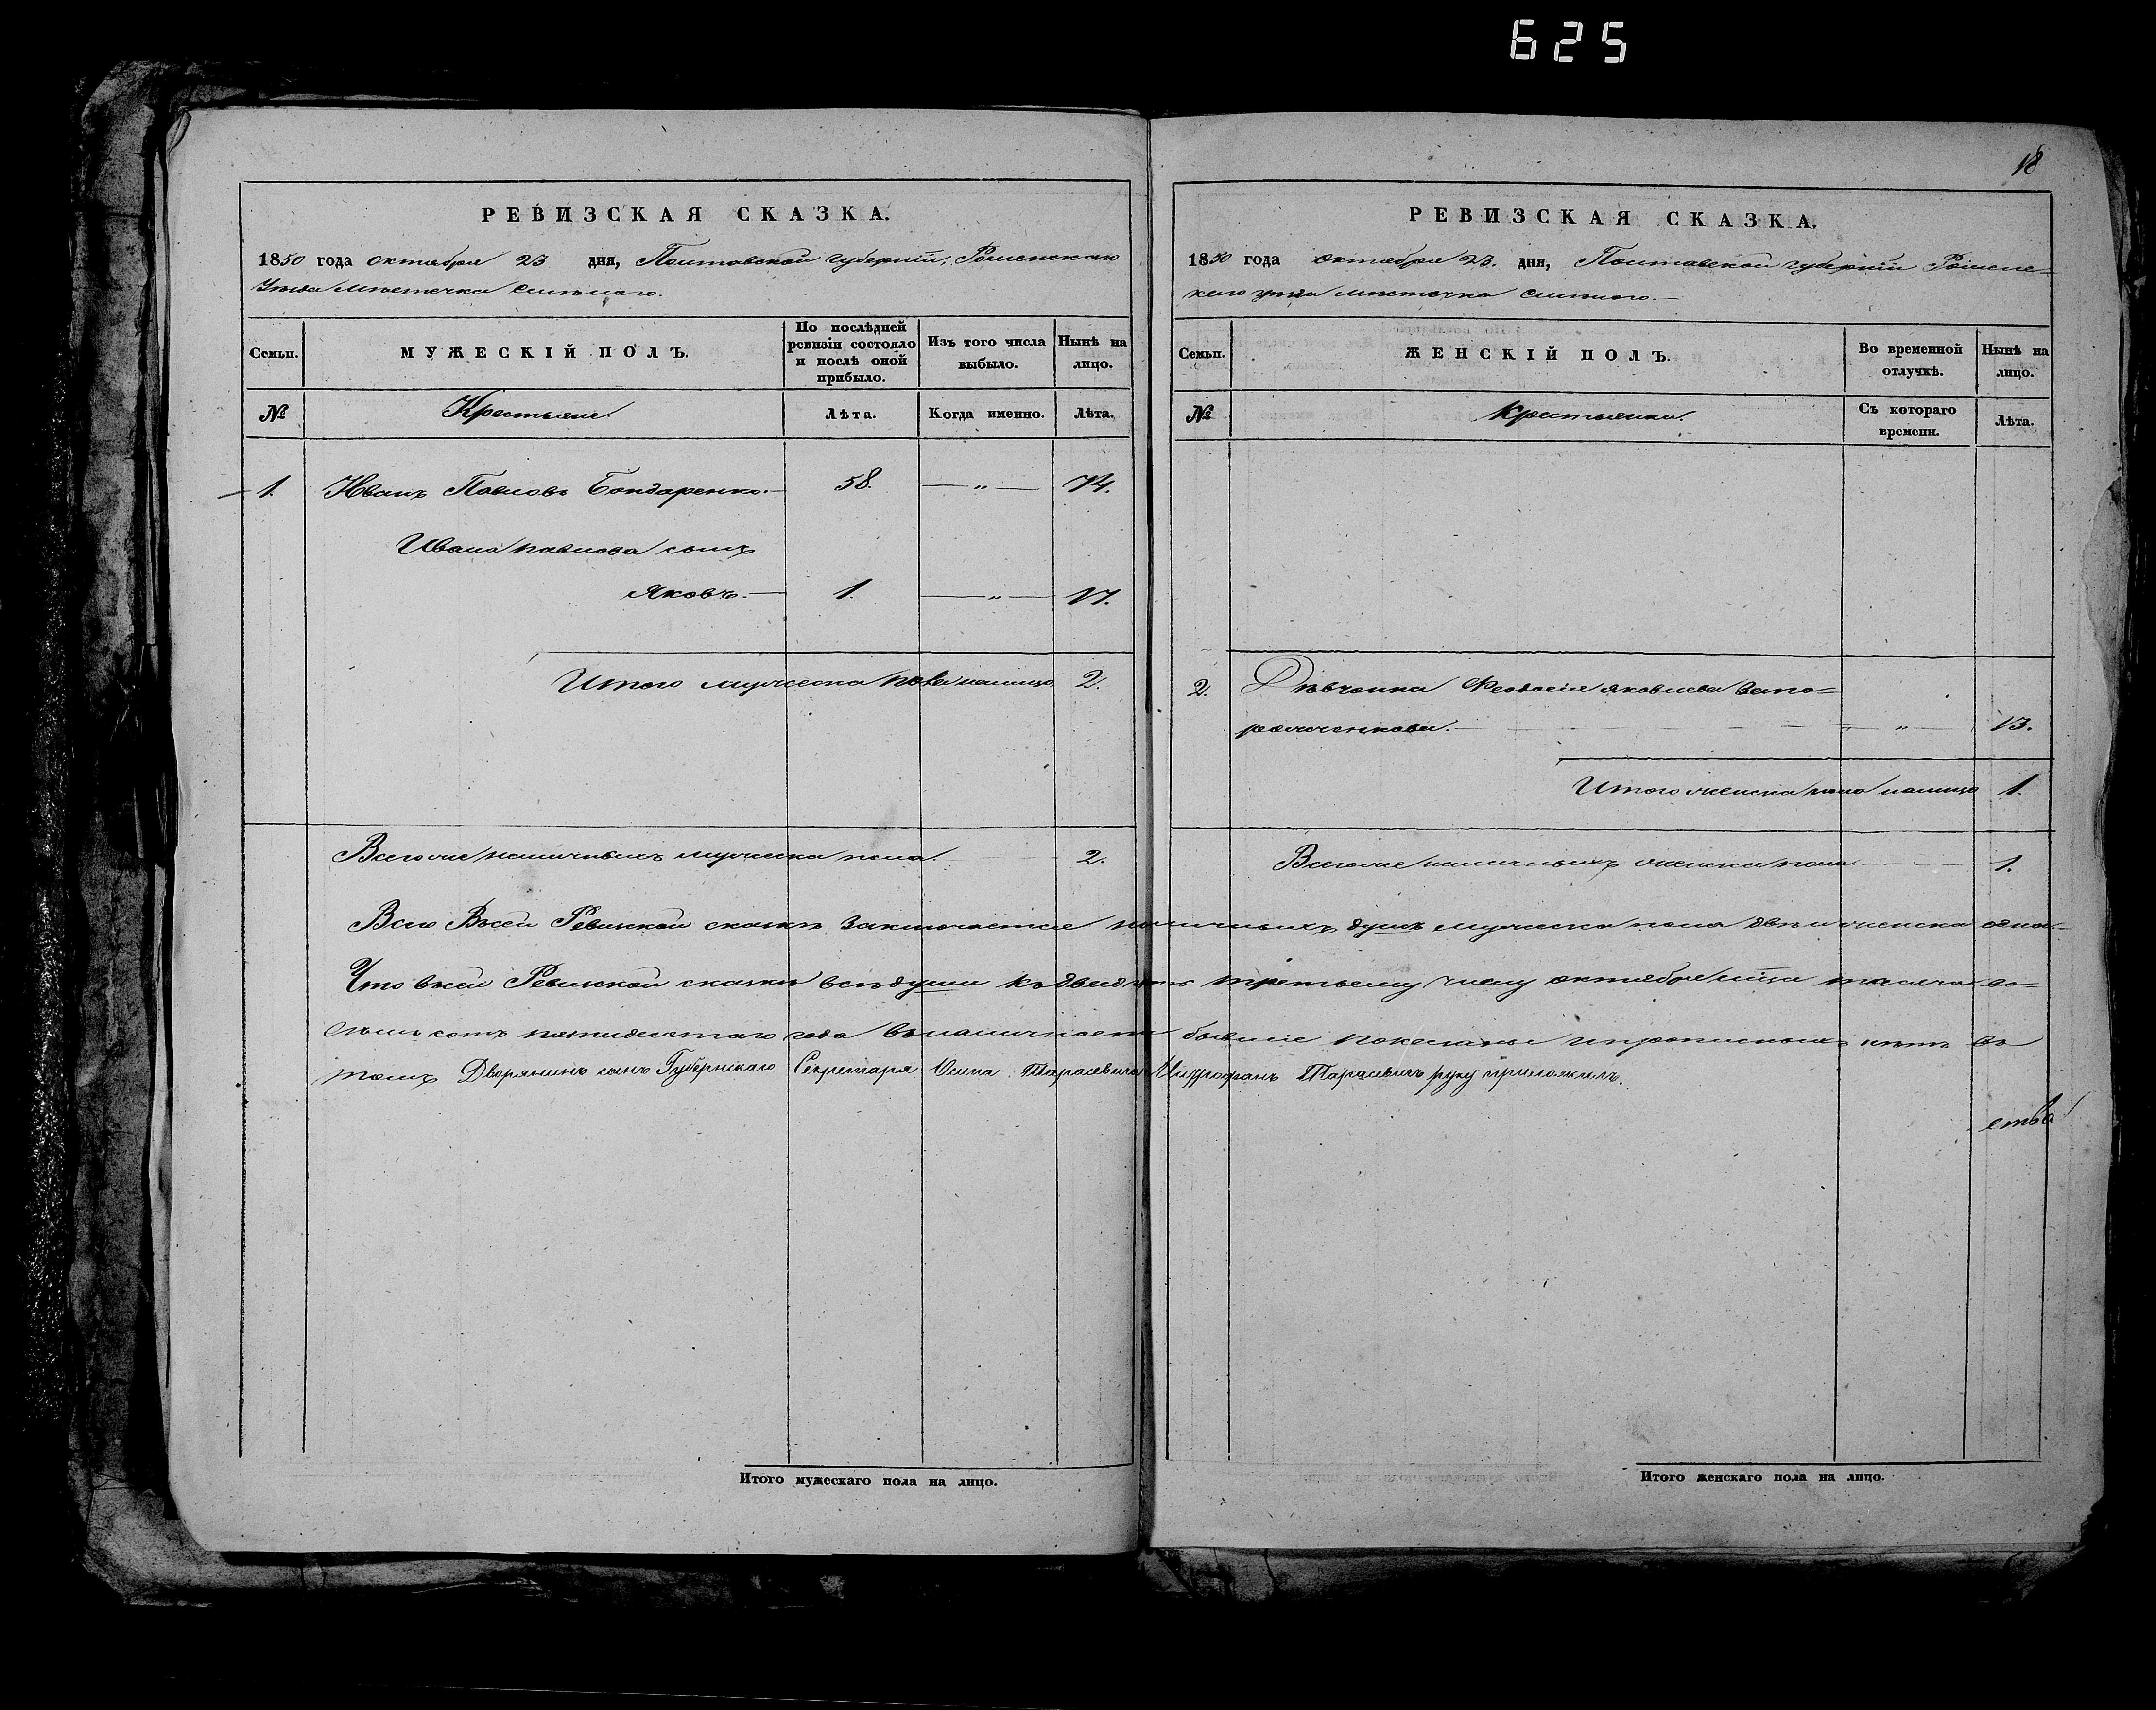 625
18
РЕВИЗСКАЯ СКАЗКА.
1850 года октября 23 дня, Полтавской губернiи, Роменскаго
Уезда Местечка Смелаго.
Семьи.
МУЖЕСКIЙ ПОЛЪ.
По послѣдней ревизiи состояло и послѣ оной прибыло.
Изъ того числа выбыло.
Нынѣ на лицо.
№
Крестьяне.
Лѣта.
Когда именно.
Лѣта.
1. Иванъ Павловъ Бондаренко.— 58. —„— 74.
Ивана павлова сынъ
Яковъ.— 1. —„— 17.
Итого мужеска пола налицо 2.
Всего же наличныхъ мужеска пола. 2.
РЕВИЗСКАЯ СКАЗКА.
1850 года октября 23. дня, Полтавской губернiи Роменс-
каго уезда местечка Смелого.—
Семьи.
ЖЕНСКIЙ ПОЛЪ.
Во временной отлучкѣ.
Нынѣ на лицо.
№
Крестьянки.
Съ котораго времени.
Лѣта.
2. Дѣвчонка Феодосiя яковлева Запо=
рожченкова.— —„— 13.
Итого женска пола налицо 1.
Всего же наличныхъ женска пола.— 1.
Всего Всей Ревизской сказкѣ заключается наличныхъ душъ мужеска пола двѣ и женска одна.—
Что всей Ревизской сказкѣ всѣ души къ двадцать третьему числу октября мѣца тысяча во=
семь сотъ пятидесятаго года въ наличности бывшiе показаны и прописныхъ нѣтъ въ
томъ Дворянинъ сынъ Губернскаго Секретаря Осипа Тарасевича Митрофанъ Тарасевичъ руку приложилъ.
ства
Итого мужескаго пола на лицо.
Итого женскаго пола на лицо.